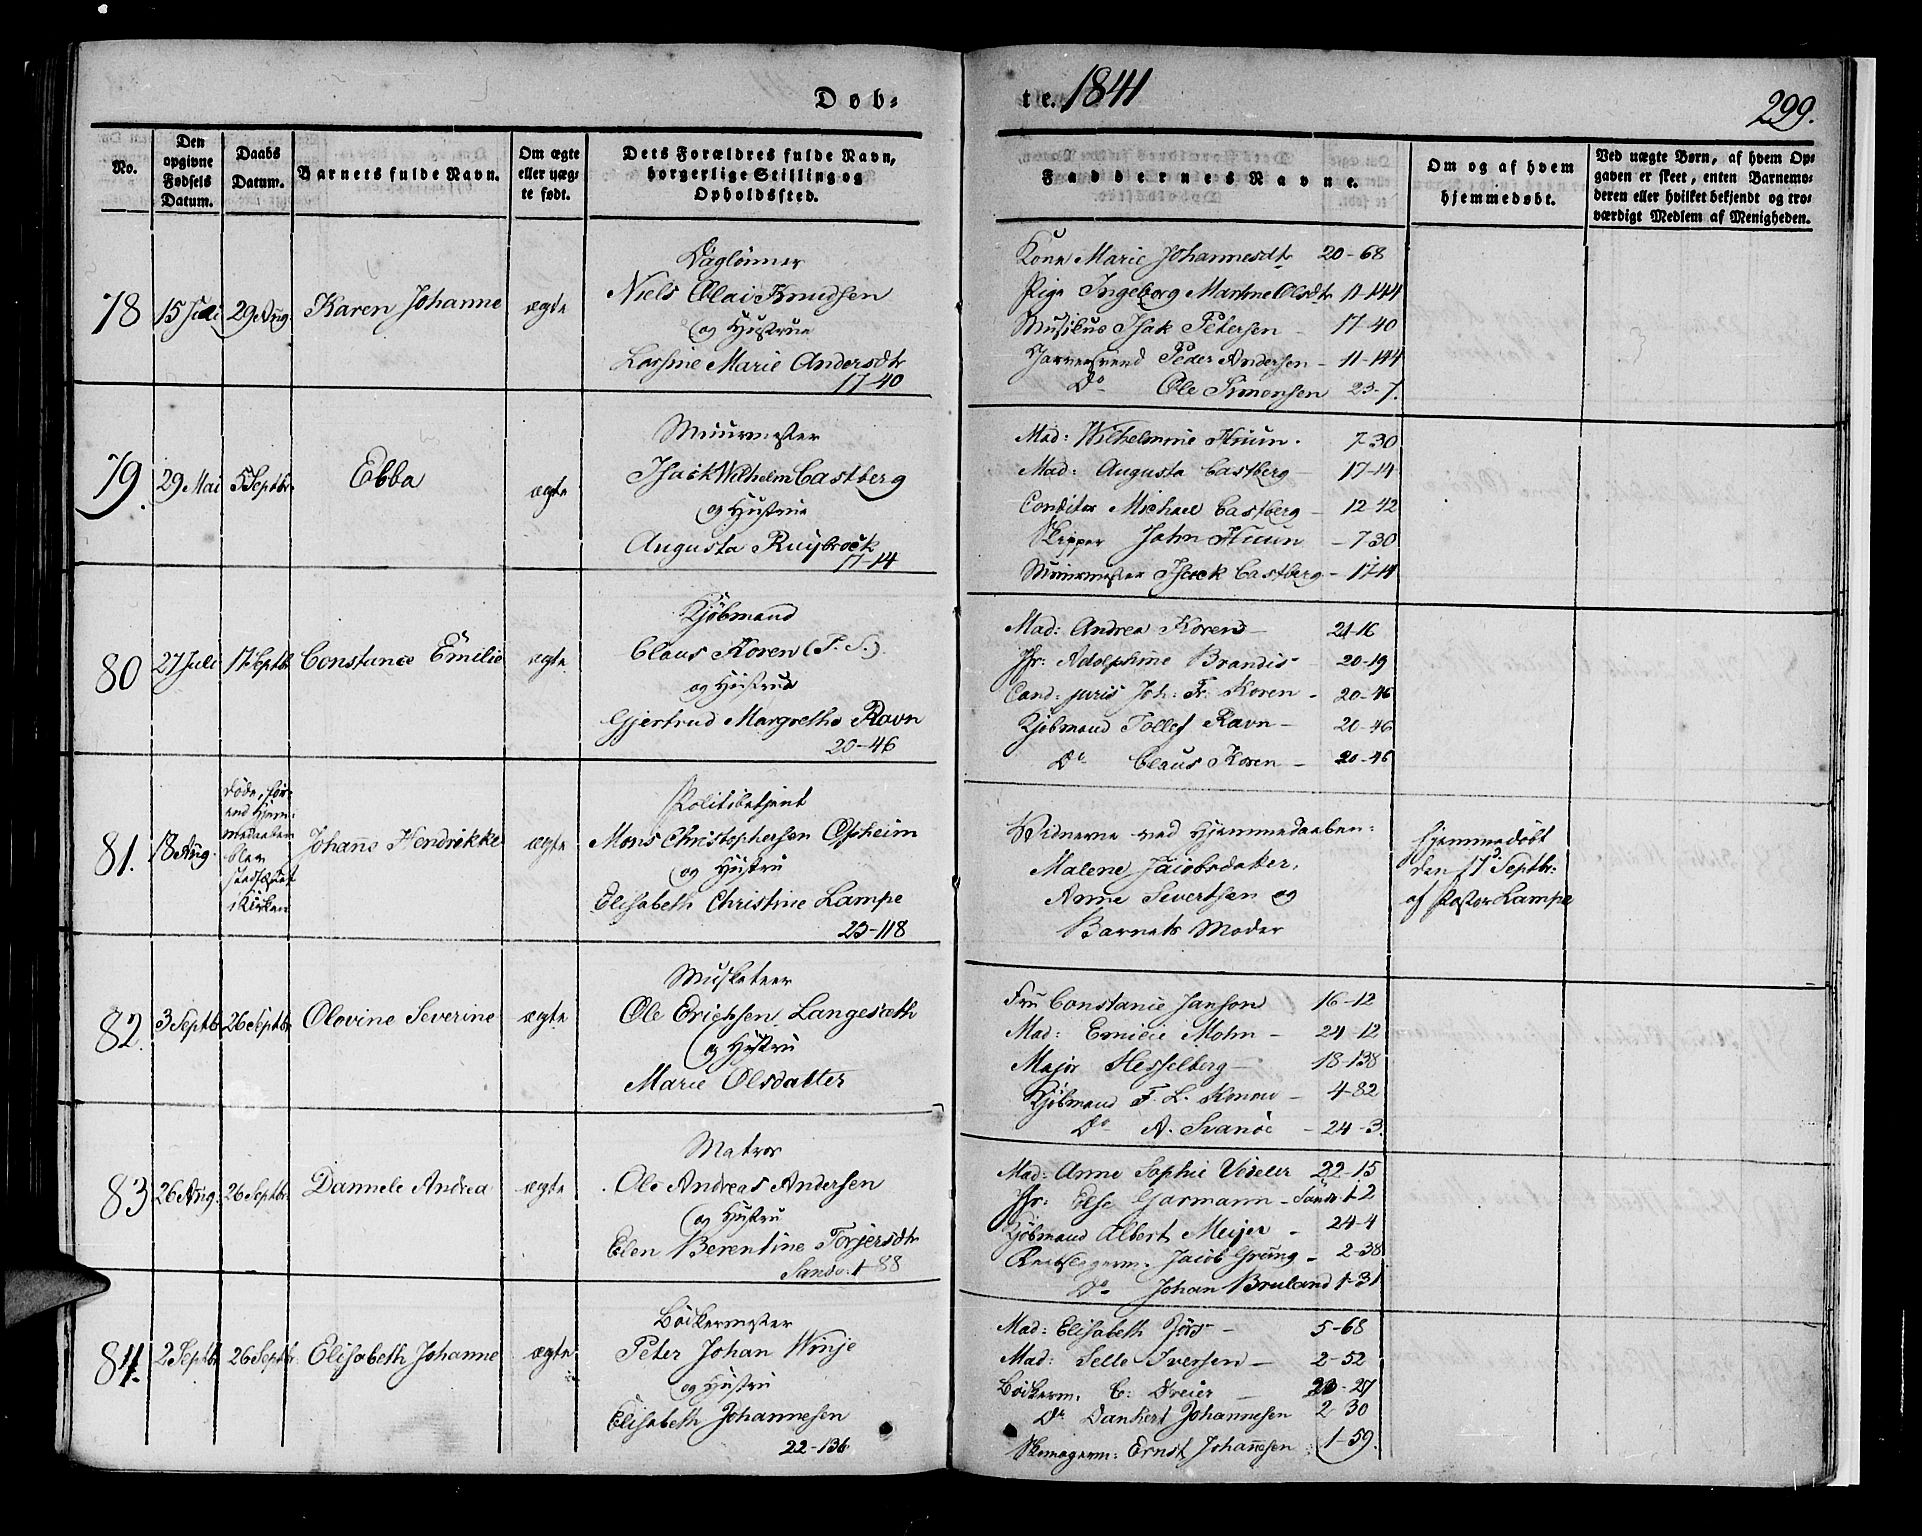 Døb-
te. 1841
299.
No.
Den opgivne Fødsels Datum.
Daabs Datum.
Barnets fulde Navn.
Om ægte eller uægte født.
Dets Forældres fulde Navn, borgerlige Stilling og Opholdssted.
Faddernes Navne.
Om og af hvem hjemmedøbt.
Ved uægte Børn, af hvem Opgaven er skeet, enten Barnemoderen eller hvilket bekjendt og troværdigt Medlem af Menigheden.
78 15 Juli 29 Aug. Karen Johanne ægte
Daglønner
Niels Olai Knudsen
og Hustrue
Marie Andersdtr
17-40
Kone Marie Johannesdtr 20-68
Pige Ingeborg Martine Olsdtr 11-144
Musikus Isak Petersen - 17-40
Peder Andersen - 11-144
Do Ole Simonsen 23-7.
79. 29 Mai 5 Septbr. Ebba ægte
Muurmester
Isack Wilhelm Castberg
og Hustrue
Augusta Ruisbrock
17-14
Mad: Wilhelmine Huun. 7-30
Mad: Augusta Castberg 17-14
Conditor Michael Castberg - 12-42
Skipper John Huun - 7-30
Muurmester Isack Castberg - 17-14
80 27 Juli 17 Septbr Constance Emilie ægte
Kjøbmand
Claus Koren (F. S.)
og Hustrue
Gjertrud Margrethe Ravn
20-46
Mad: Andrea Koren - 24-16
Jfr: Adolphine Brandis - 20-19
Cand: juris Joh: Fr: Koren - 20-46
Kjøbmand Tollef Ravn - 20-46
Do Claus Koren - 20-46
81. 18 Aug.
døde, før-
end Hjem-
medaaben
blev
stadfæstet
i Kirken
Johanne Hendrikke ægte
Politibetjent
Mons Christophersen Opheim
og Hustru
Elisabeth Christine Lampe
23-118
Vidnerne ved Hjemmedaaben:
Malene Jacobsdatter,
Anne Sivertsen og
Barnets Moder
hjemmedøbt
den 17 Septbr.
af Pastor Lampe
82. 3 Septb 26 Septbr Olovine Severine ægte
Musketeer
Ole Erichsen Langesæth
og Hustru
Marie Olsdatter
Fru Constance Janson 16-12
Mad: Emilie Mohn - 24-12
Major Hesselberg - 18-138
Kjøbmand F. L. Konow - 4-82
Do A. Svanöe - 24-3.
83 26 Aug. 26 Septbr. Andrea ægte
Matros
Ole Andreas Andersen
og Hustru
Elen Berentine Torjersdtr
Sandv: 1-88
Mad: Anne Sophie 22-15
Jfr: Else Garmann - Sandv 1-2
Kjøbmand Albert Meyer - 24-4
Jacob Grüng - 2-38
Do Johan Bruland 1-31
84. 2 Septb 26 Septbr. Elisabeth Johanne ægte
Bødkermester
Peter Johan Winje
og Hustru
Elisabeth Johannesen
22-136
Mad: Elisabeth - 5-68
Mad: Selle Iversen - 2-52
Bødkerm: C: Dreier - 27
Do Dankert Johannesen 2 30
Ernst Johannesen 1-59.